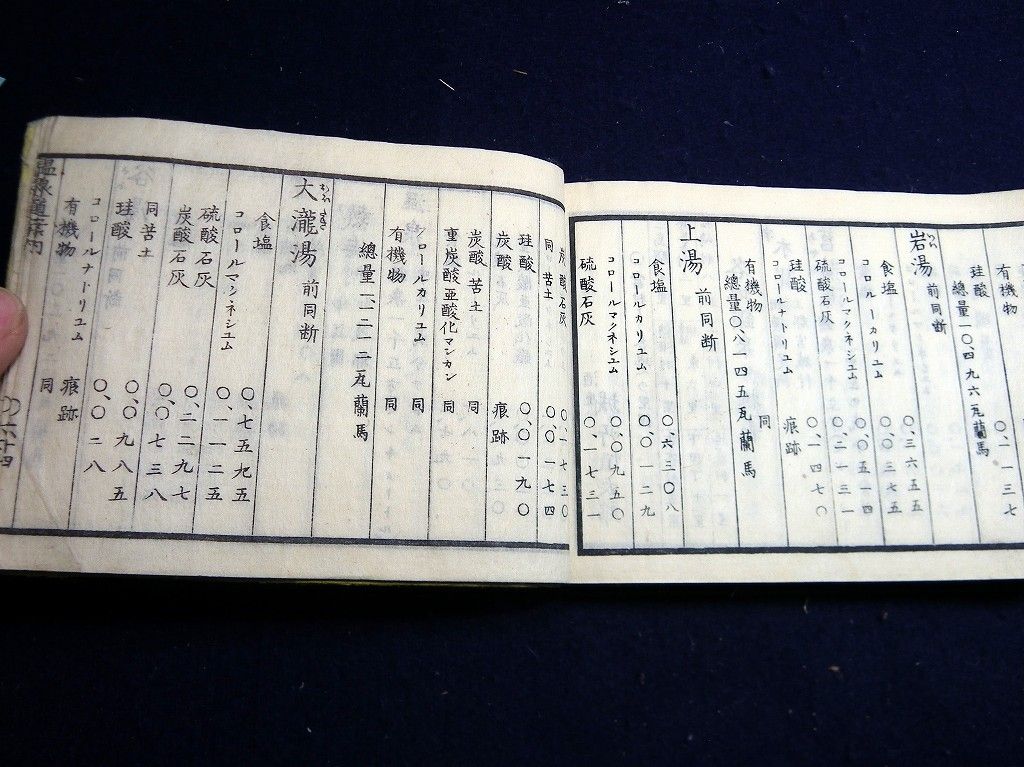 有機物 〇、一一三七
珪酸
總量一〇、四九六瓦蘭馬
岩湯 前同断
食塩 〇、三六五五
コロールカリユム 〇、〇〇三五
コロールマクネシユム 〇、〇五一四
硫酸石灰 〇、二一三一
コロールナトリユム 〇、一四七〇
珪酸 痕跡
有機物 同
總量〇、八一四五瓦蘭馬
上湯 前同断
食塩 〇、六三〇八
コロールカリユム 〇、〇一二九
コロールマクネシユム 〇、〇九五〇
硫酸石灰 〇、一七三一
炭酸石灰 〇、一七三〇
同 苦土 〇、〇一七四
珪酸 〇、〇一九〇
炭酸 痕跡
炭酸苦土 同
重炭酸亜酸化マンカン 同
クロールカリユム 同
有機物 同
總量一、二一一二瓦蘭馬
大瀧湯 前同断
食塩 〇、七五九五
コロールマンネシユム 〇、一一二五
硫酸石灰 〇、二二九七
炭酸石灰 〇、〇七三八
同苦土 〇、〇九八五
珪酸 〇、〇二八
コロールナトリユム 痕跡
有機物 同